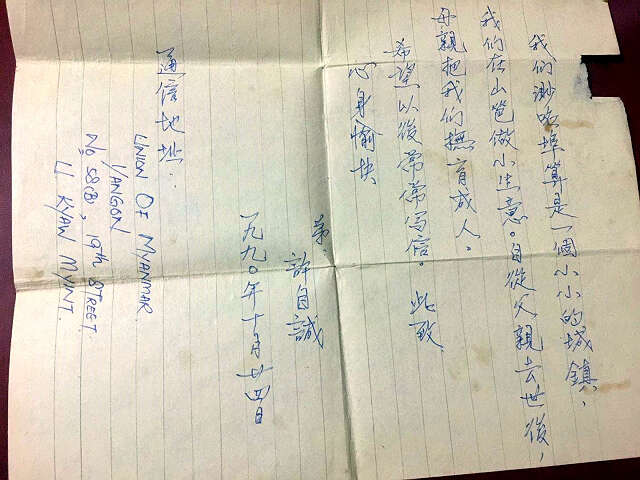 我们渺埠算是一個小小的城鎮，
我们在山笆做小生意。自從父親去世後，
母親把我们撫育成人。
希望以後常常写信。此致
心身愉快
弟 許自誠
一九九〇年十月廿四日
通信地址：
UNION OF MYANMAR
YANGON
No 58(B), 19th STREET
U KYAW MYINT.